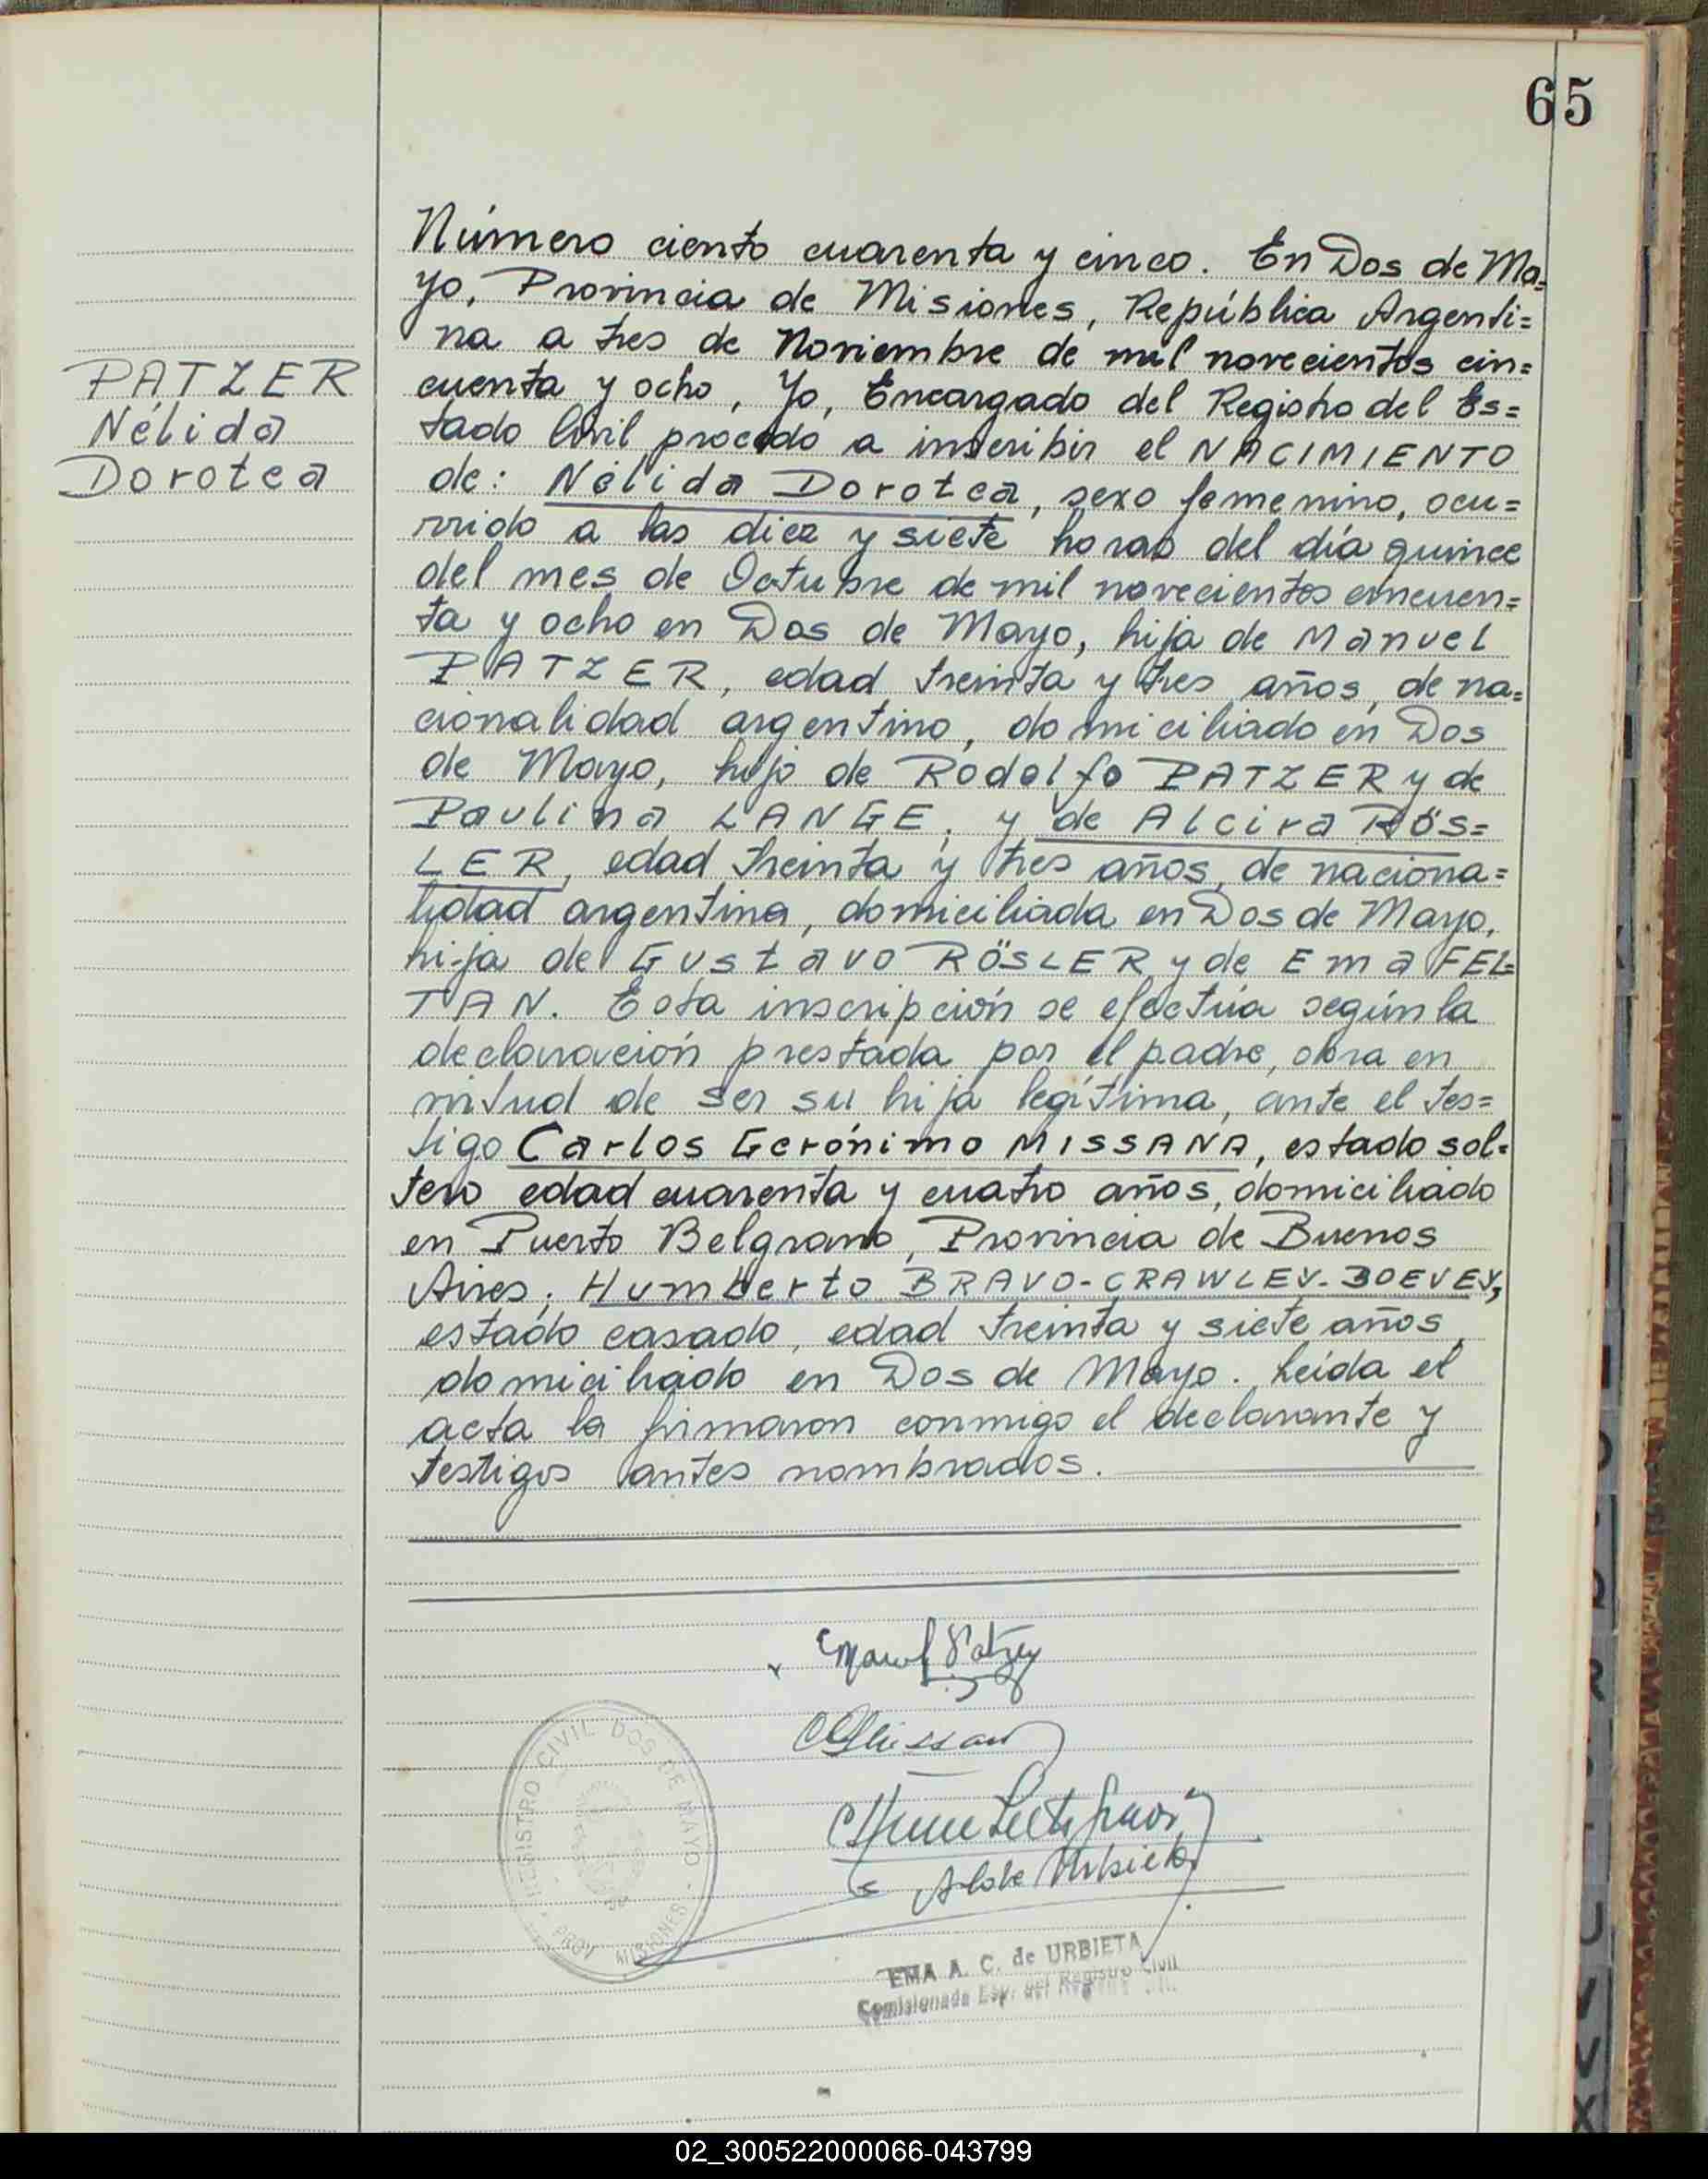 65
Número ciento cuarenta y cinco. En Dos de Ma=
yo, Provincia de Misiones, República Argenti=
na a tres de Noviembre de mil novecientos cin=
cuenta y ocho, Yo, Encargado del Registro del Es=
tado Civil procedo a inscribir el NACIMIENTO
PATZER
Nélida
Dorotea
de: Nélida Dorotea, sexo femenino, ocu=
rrido a las diez y siete horas del día quince
del mes de Octubre de mil novecientos cincuen=
ta y ocho en Dos de Mayo, hija de Manuel
PATZER, edad treinta y tres años, de na=
cionalidad argentino, domiciliado en Dos
de Mayo, hijo de Rodolfo PATZER y de
Paulina LANGE; y de Alcira RÖS=
LER, edad treinta y tres años, de naciona=
lidad argentina, domiciliada en Dos de Mayo,
hija de Gustavo RÖSLER y de Ema FEL=
TAN. Esta inscripción se efectúa según la
declaración prestada por el padre, obra en
virtud de ser su hija legítima, ante el tes=
tigo Carlos Gerónimo MISSANA, estado sol=
tero edad cuarenta y cuatro años, domiciliado
en Puerto Belgrano, Provincia de Buenos
Aires; Humberto BRAVO-CRAWLEY-BOEVEY,
estado casado, edad treinta y siete años,
domiciliado en Dos de Mayo. Leída el
acta la firmaron conmigo el declarante y
testigos antes nombrados.
x Manuel Patzer
REGISTRO CIVIL DOS DE MAYO
PROV. MISIONES
Urbieta
EMA A. C. de URBIETA
Comisionada Esp. del Registro Civil
02_300522000066-043799